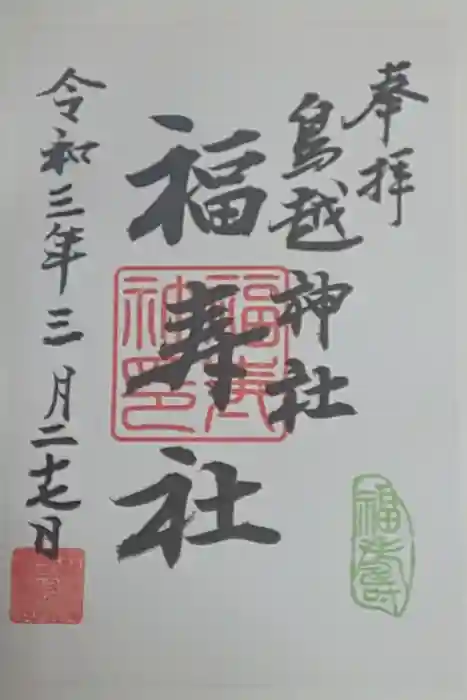 奉拝
鳥越神社
福寿社
令和三年三月二十七日
福寿